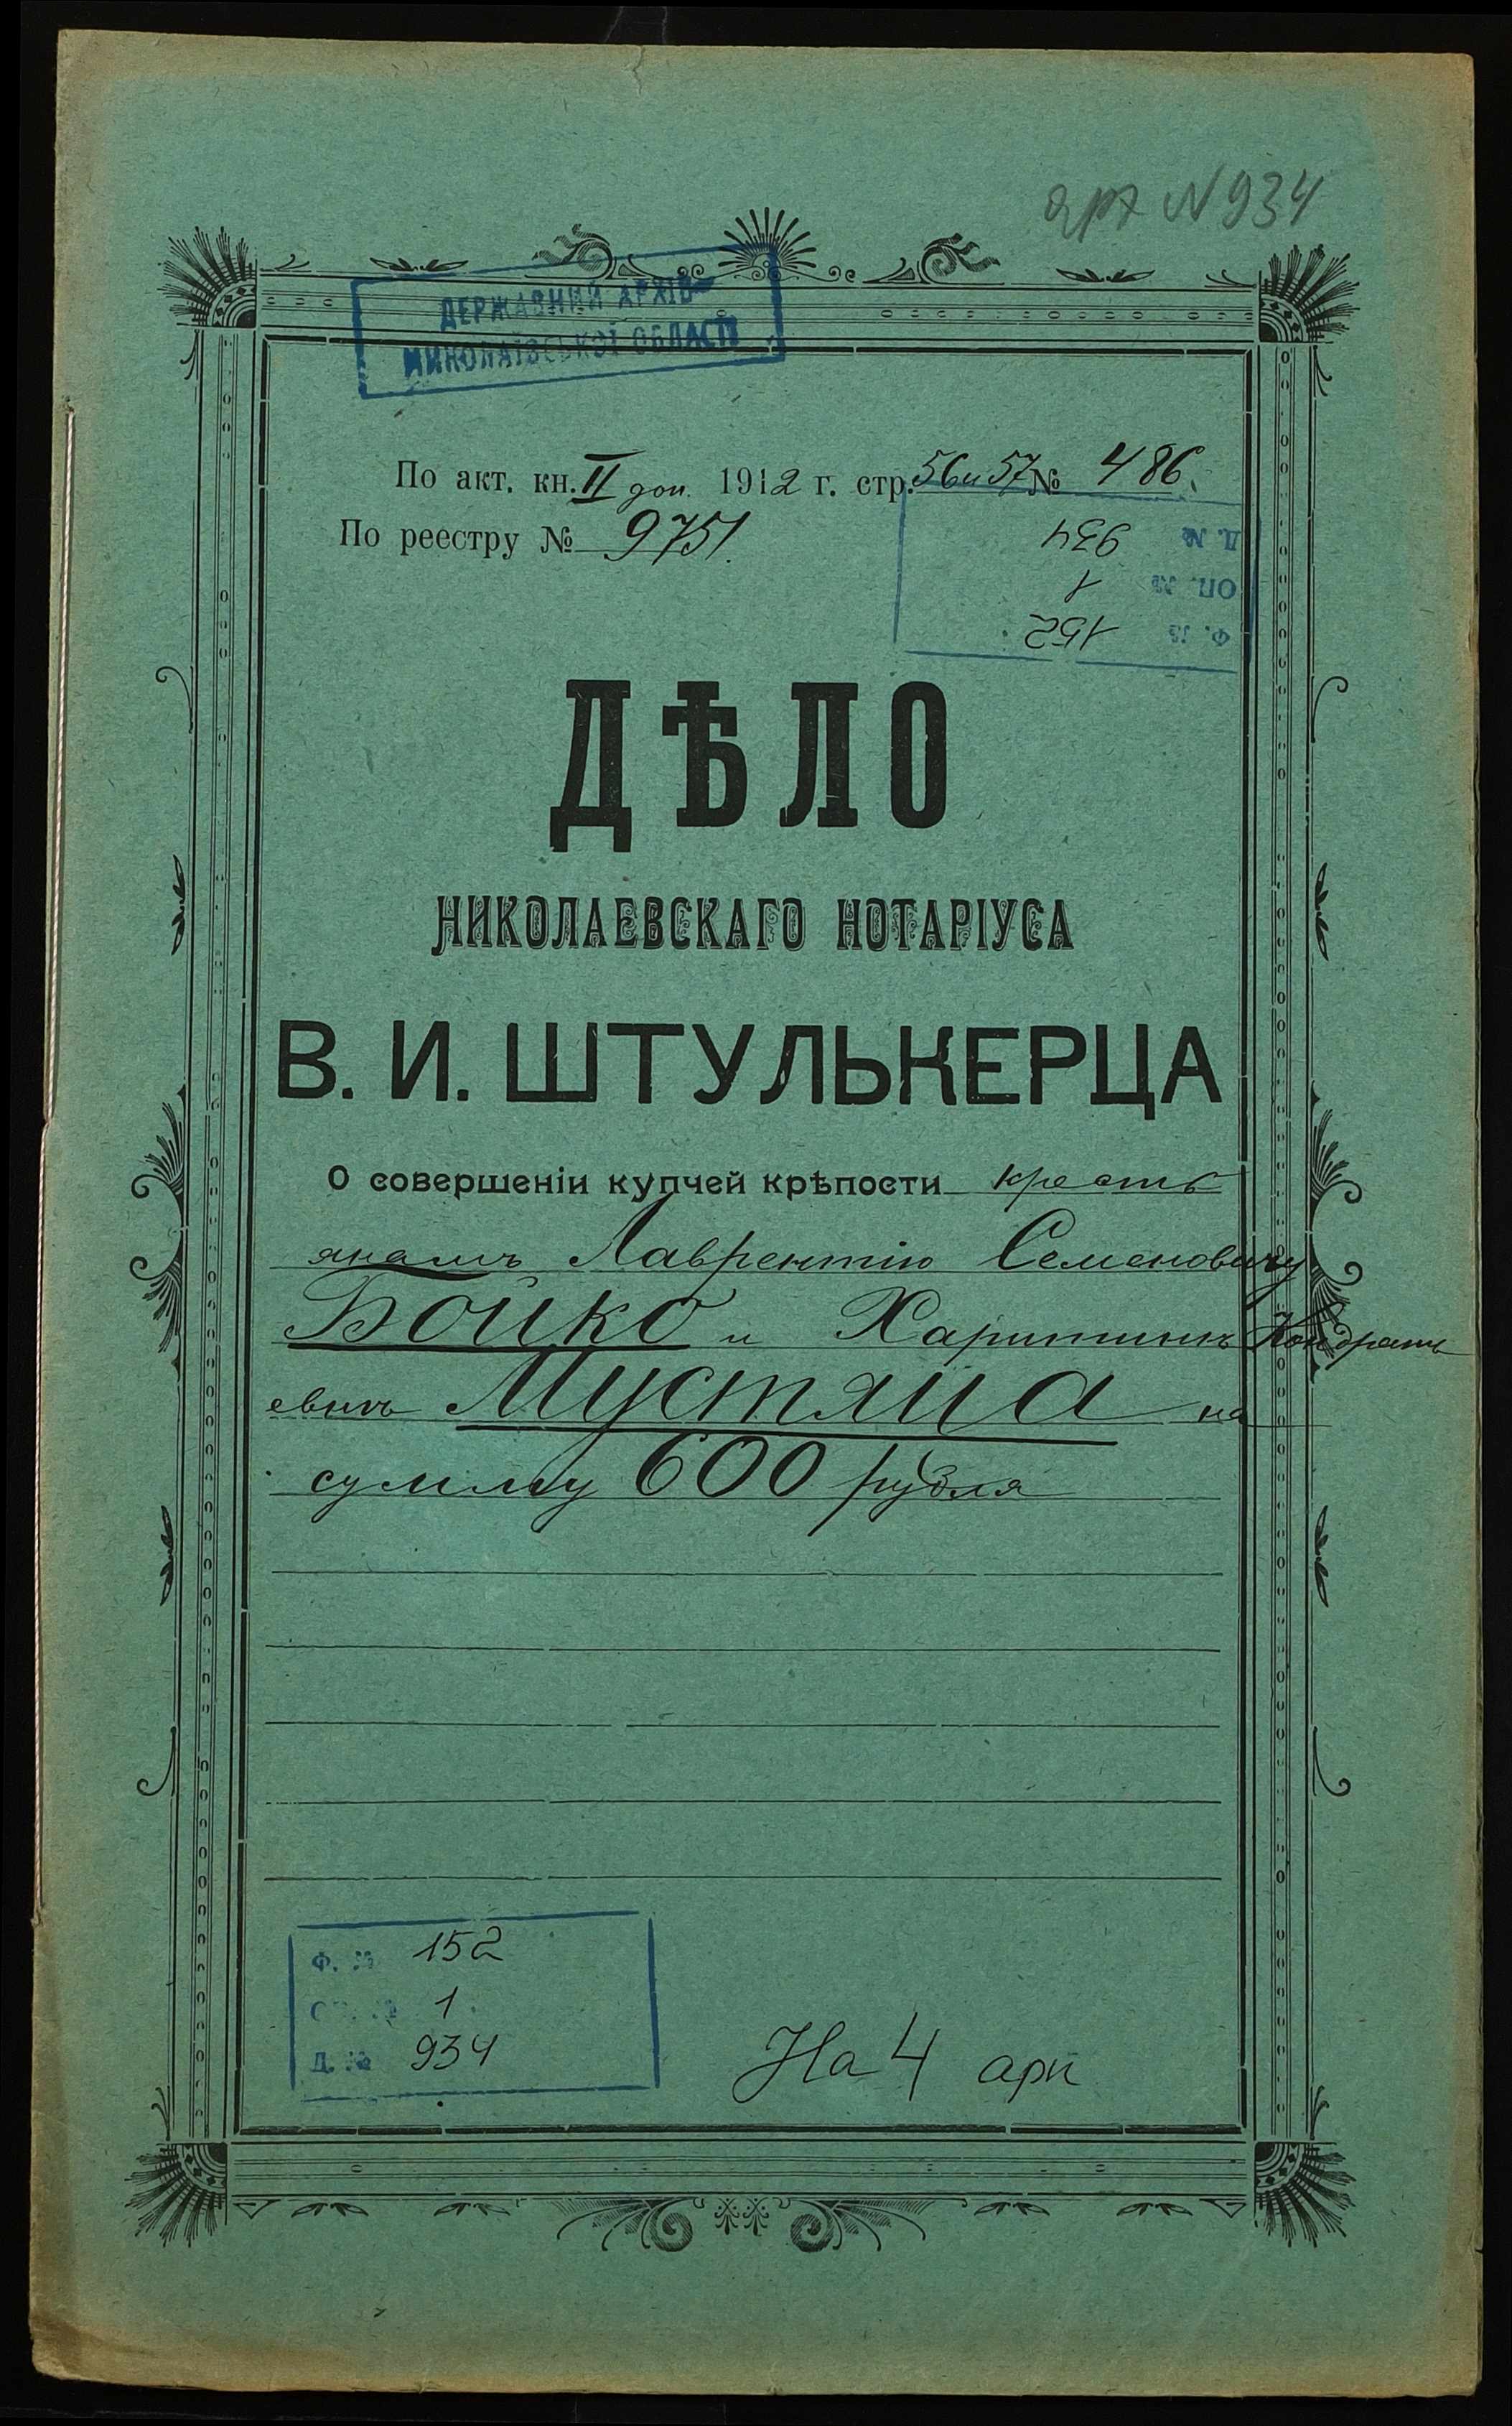 арх N 934
ДЕРЖАВНИЙ АРХІВ
МИКОЛАЇВСЬКОЇ ОБЛАСТІ
По акт. кн. II доп. 1912 г. стр. 56 и 57 № 486.
По реестру № 9751.
Д. № 934
ОП. № 1
Ф. № 152
ДѢЛО
НИКОЛАЕВСКАГО НОТАРІУСА
В. И. ШТУЛЬКЕРЦА
О совершеніи купчей крѣпости кресть
янамъ Лаврентію Семеновичу
Бойко и Харитинѣ Кондрать
евнѣ Мустяца на
сумму 600 рубля
Ф. № 152
ОП. № 1
Д. № 934
На 4 арк